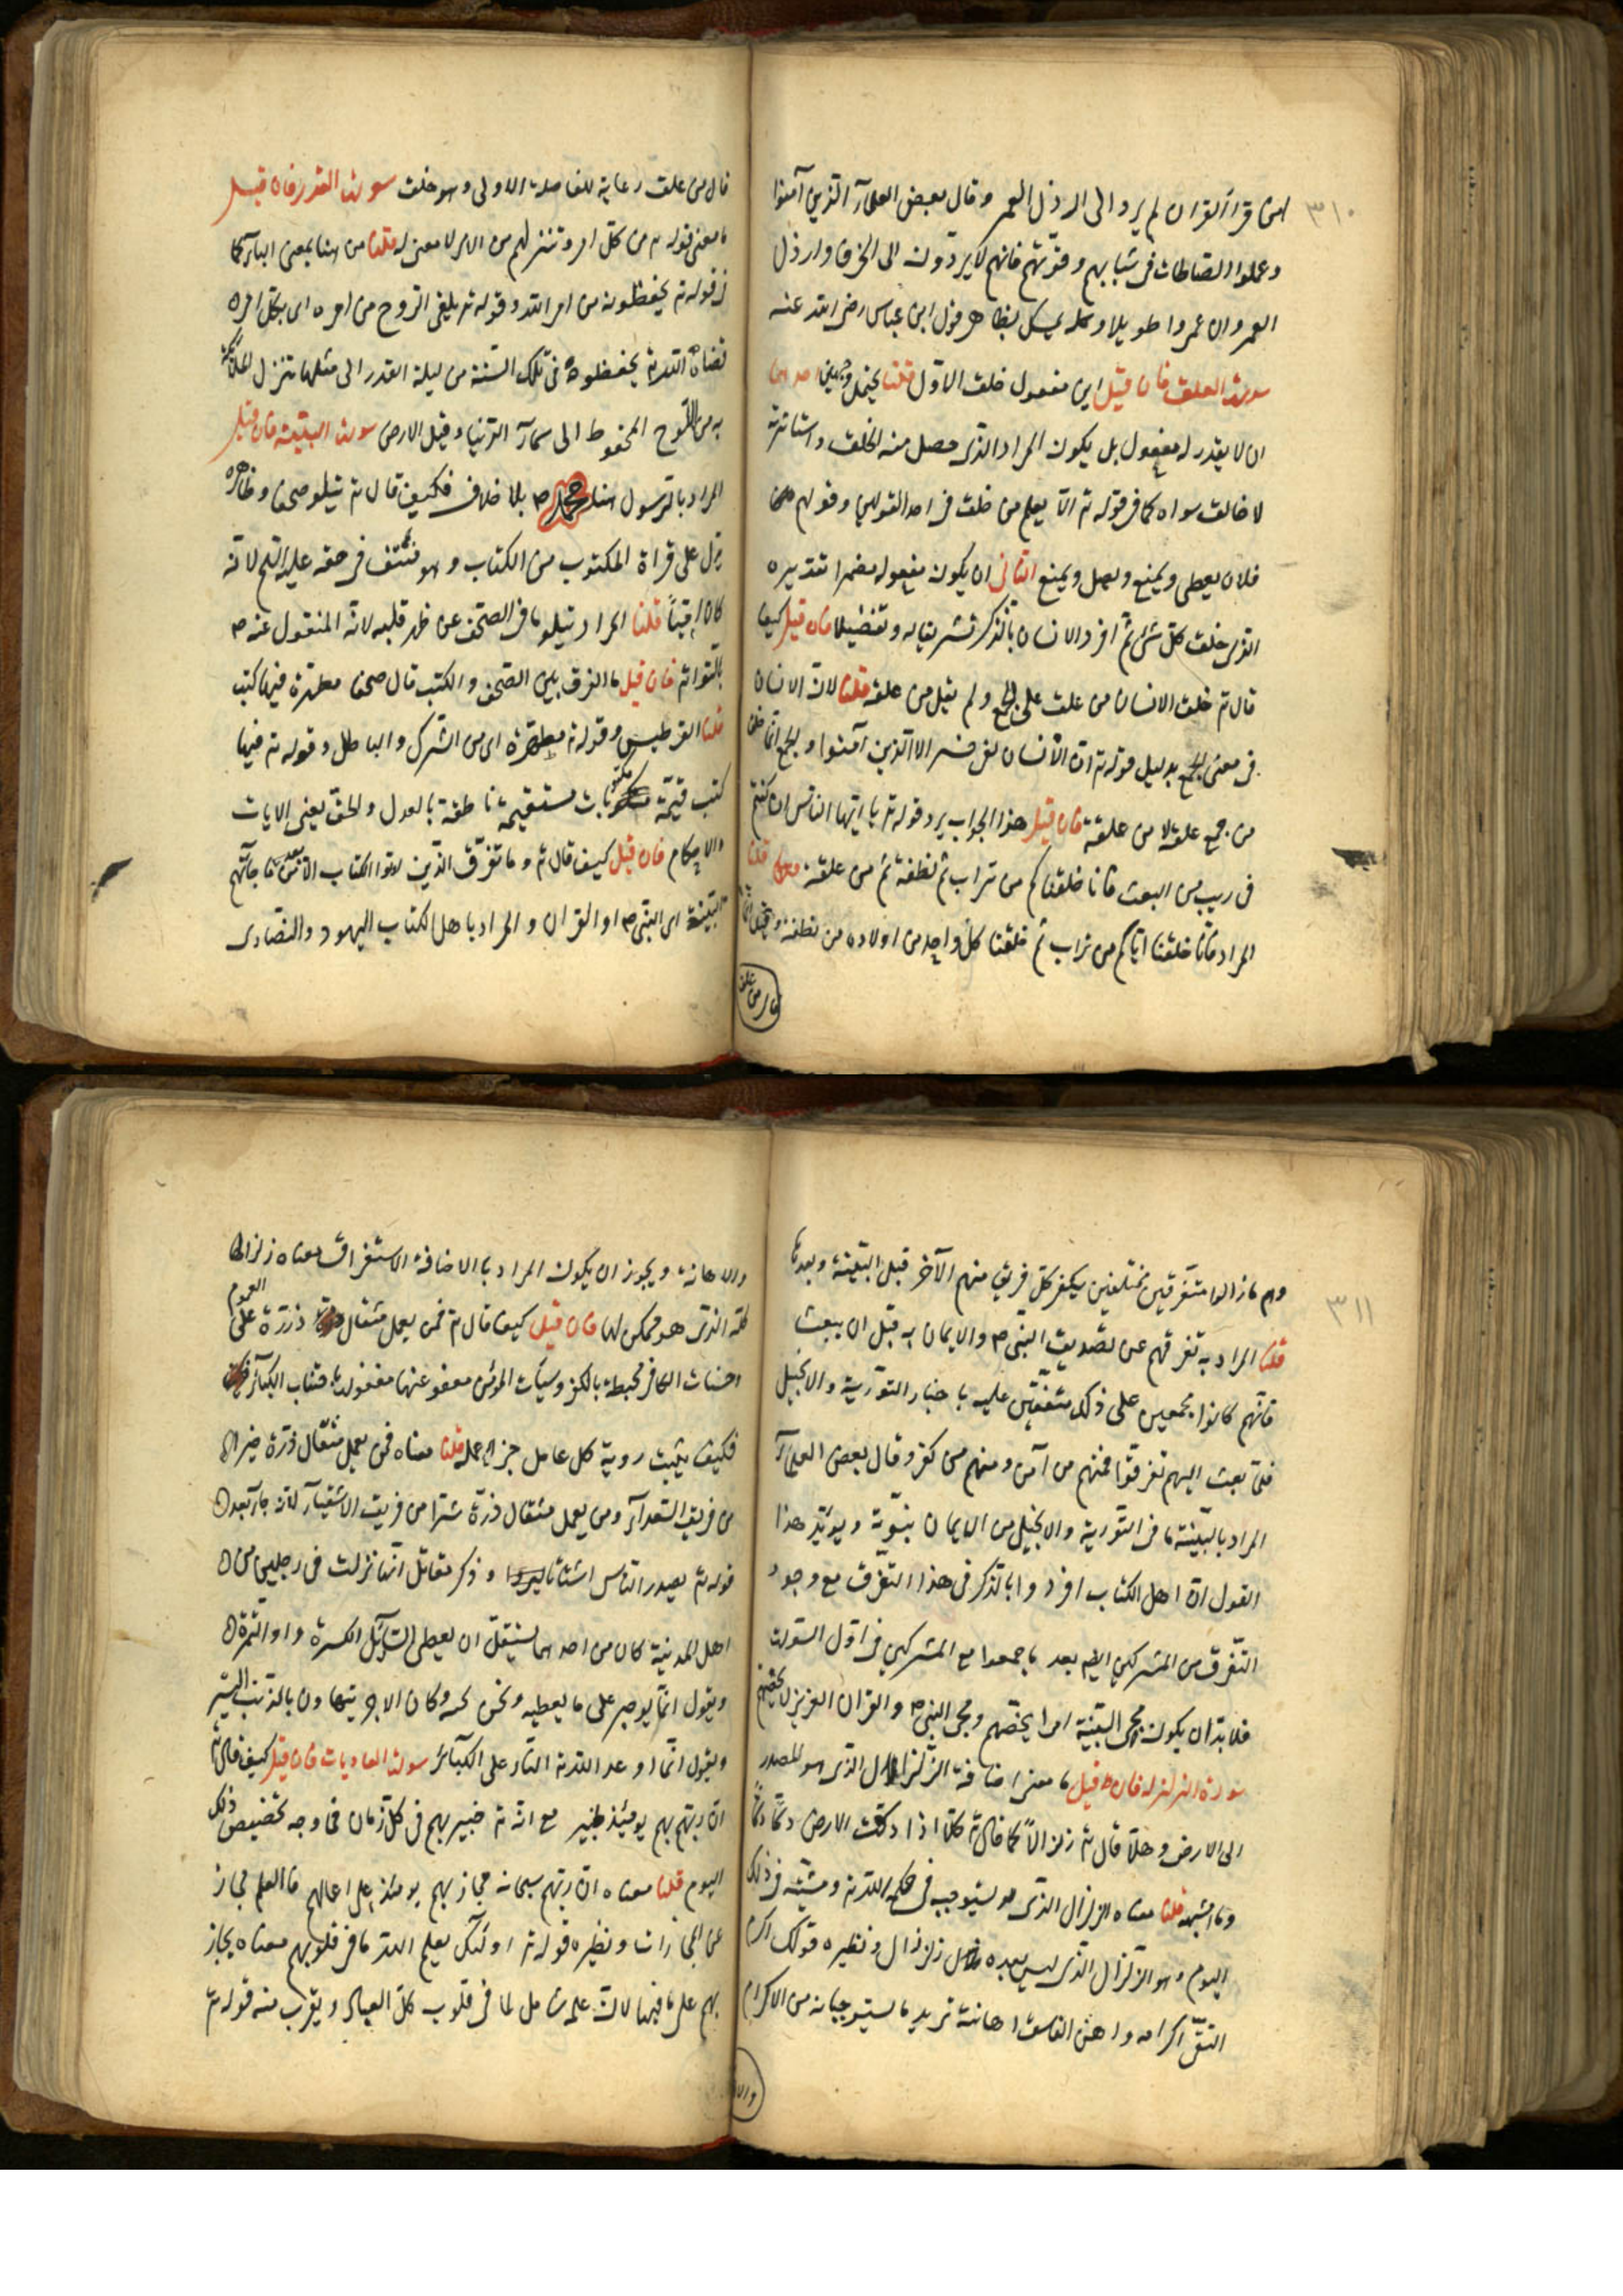 ٣١٠
امن قرأ القران لم يرد الى ارذل العمر وقال بعض العلمآء الّذين آمنوا
وعملوا الصّالحات فى شبابهم وقوّتهم فانهم لا يردّون الى الخرف وارذل
العمر وان عمروا طويلا وكله يشكل بظاهر قول ابن عباس رضى الله عنه
سورة العلق فان قيل اين مفعول خلق الاوّل قلنا يحتمل وجهين احدهما
ان لا يقدر له مفعول بل يكون المراد الّذى حصل منه الخلق واستأثر به
لا خالق سواه كما فى قوله تم الا يعلم من خلق فى احد القولين وقولهم
فلان يعطى ويمنع ويصل ويمنع الثانى ان يكون مفعوله مضمرا تقديره
الّذى خلق كلّ شئ ثم افرد الانسان بالذّكر تشريفا له وتفضيلا فان قيل كيف
قال تم خلق الانسان من علق على الجمع ولم يقل من علقة قلنا لان الانسان
فى معنى الجمع بدليل قوله تم انّ الانسان لفى خسر الا الّذين آمنوا والجمع انما خلق
من جمع علقة لا من علقة فان قيل هذا الجواب يرد قوله تم يا ايّها النّاس ان كنتم
فى ريب من البعث فانا خلقناكم من تراب ثم نطفة ثم من علقة قلنا
المراد فانا خلقنا اباكم من تراب ثم خلقنا كلّ واحد من اولاده من نطفة وقيل انما
قال من علق
قال من علق رعاية للفاصلة الاولى وهو خلق سورة القدر فان قيل
ما معنى قوله تم من كل امر وتنزلهم من الامر لا معنى له قلنا من هنا بمعنى البآء كما
فى قوله تم يحفظونه من امر الله وقوله تم يلقى الرّوح من امره اى بكلّ امر
قضاه الله تم يحفظوه فى تلك السّنة من ليلة القدر الى مثلها تنزل الملآئكة
به من اللّوح المحفوظ الى سمآء الدّنيا وقيل الارض سورة البيّنة فان قيل
المراد بالرّسول هنا محمّد صم بلا خلاف فكيف قال تم يتلو صحفا وظاهره
يدل على قراة المكتوب من الكتاب وهو منتف فى حقه عليه السّم لانّه
كان اميّاً قلنا المراد يتلو ما فى الصّحف عن ظهر قلبه لانّه المنقول عنه صم
بالتّواتر فان قيل ما الفرق بين الصّحف والكتب قال صحفا مطهّرة فيها كتب
قلنا القراطيس وقوله تم مطهّرة اى من الشّرك والباطل وقوله تم فيها
كتب قيّمة مكتوبات مستقيمة ناطقة بالعدل والحقّ يعنى الايات
والاحكام فان قيل كيف قال تم وما تفرّق الّذين اوتوا الكتاب الا من بعد ما جآءتهم
البيّنة اى النّبى صم او القران والمراد باهل الكتاب اليهود والنّصارى
٣١١
وهم ما زالوا متفرّقين مختلفين يكفر كلّ فريق منهم الآخر قبل البيّنة وبعدها
قلنا المراد به تفرقهم عن تصديق النّبى صم والايمان به قبل ان يبعث
فانّهم كانوا مجمعين على ذلك متّفقين عليه باخبار التّورية والانجيل
فلمّا بعث اليهم تفرقوا فمنهم من آمن ومنهم من كفر وقال بعض العلمآء
المراد بالبيّنة ما فى التّورية والانجيل من الايمان بنبوّته ويؤيّد هذا
القول انّ اهل الكتاب افردوا بالذّكر فى هذا التّفرّق مع وجود
التّفرق من المشركين ايضه بعد ما جمعوا مع المشركين فى اوّل السّورة
فلا بدّ ان يكون مجئ البيّنة امرا يخصّهم ومجئ النّبى صم والقران العزيز لا يخصّهم
سورة الزلزله فان قيل ما معنى اضافة الزّلزال الّذى هو المصدر
الى الارض وهلّا قال تم زلزالاً كما قال تم كلّا اذا دكّت الارض دكّا دكّا
وما اشبهه قلنا معناه الزلزال الّذى يستوجب فى حكمة الله تم ومشيّته فى ذلك
اليوم وهو الزّلزال الّذى ليس بعده زلزال ونظيره قولك اكرم
التّقى اكرامه واهن الفاسق اهانته تريد ما يستوجبانه من الاكرام
والاهانة
والاهانة ويجوز ان يكون المراد بالاضافة الاستغراق معناه زلزالها
كله الّذى هو ممكن لها فان قيل كيف قال تم فمن يعمل مثقال ذرّة على العموم
وحسنات الكافر محبطة بالكفر وسيّآت المؤمن معفو عنها مغفولة باجتناب الكبآئر
فكيف يثبت روية كل عامل جزآء عمله قلنا معناه فمن يعمل مثقال ذرّة خيرا
من فريق السّعدآء ومن يعمل مثقال ذرّة شرّا من فريق الاشقيآء لانّه جآء بعد
قوله تم يصدر النّاس اشتاتا ليروا وذكر مقاتل انّها نزلت فى رجلين من
اهل المدينة كان من احدهما يستقلّ ان يعطى السّآئل الكسرة او التّمرة
ويقول انّما يوجر على ما يعطيه ونحن نحبه وكان الاخر يتهاون بالذّنب اليسير
ويقول انّما اوعد الله تم النّار على الكبآئر سورة العاديات فان قيل كيف قال تم
انّ ربّهم بهم يومئذ لخبير مع انّه تم خبير بهم فى كلّ زمان فما وجه تخصيص ذلك
اليوم قلنا معناه انّ ربّهم سبحانه مجاز بهم يومئذ على اعمالهم فالعلم مجاز
عن المجازات ونظيره قوله تم اولئك يعلم الله ما فى قلوبهم معناه يجاز
بهم على ما فيها لان علمه شامل لما فى قلوب كلّ العباد ويقرب منه قوله تم